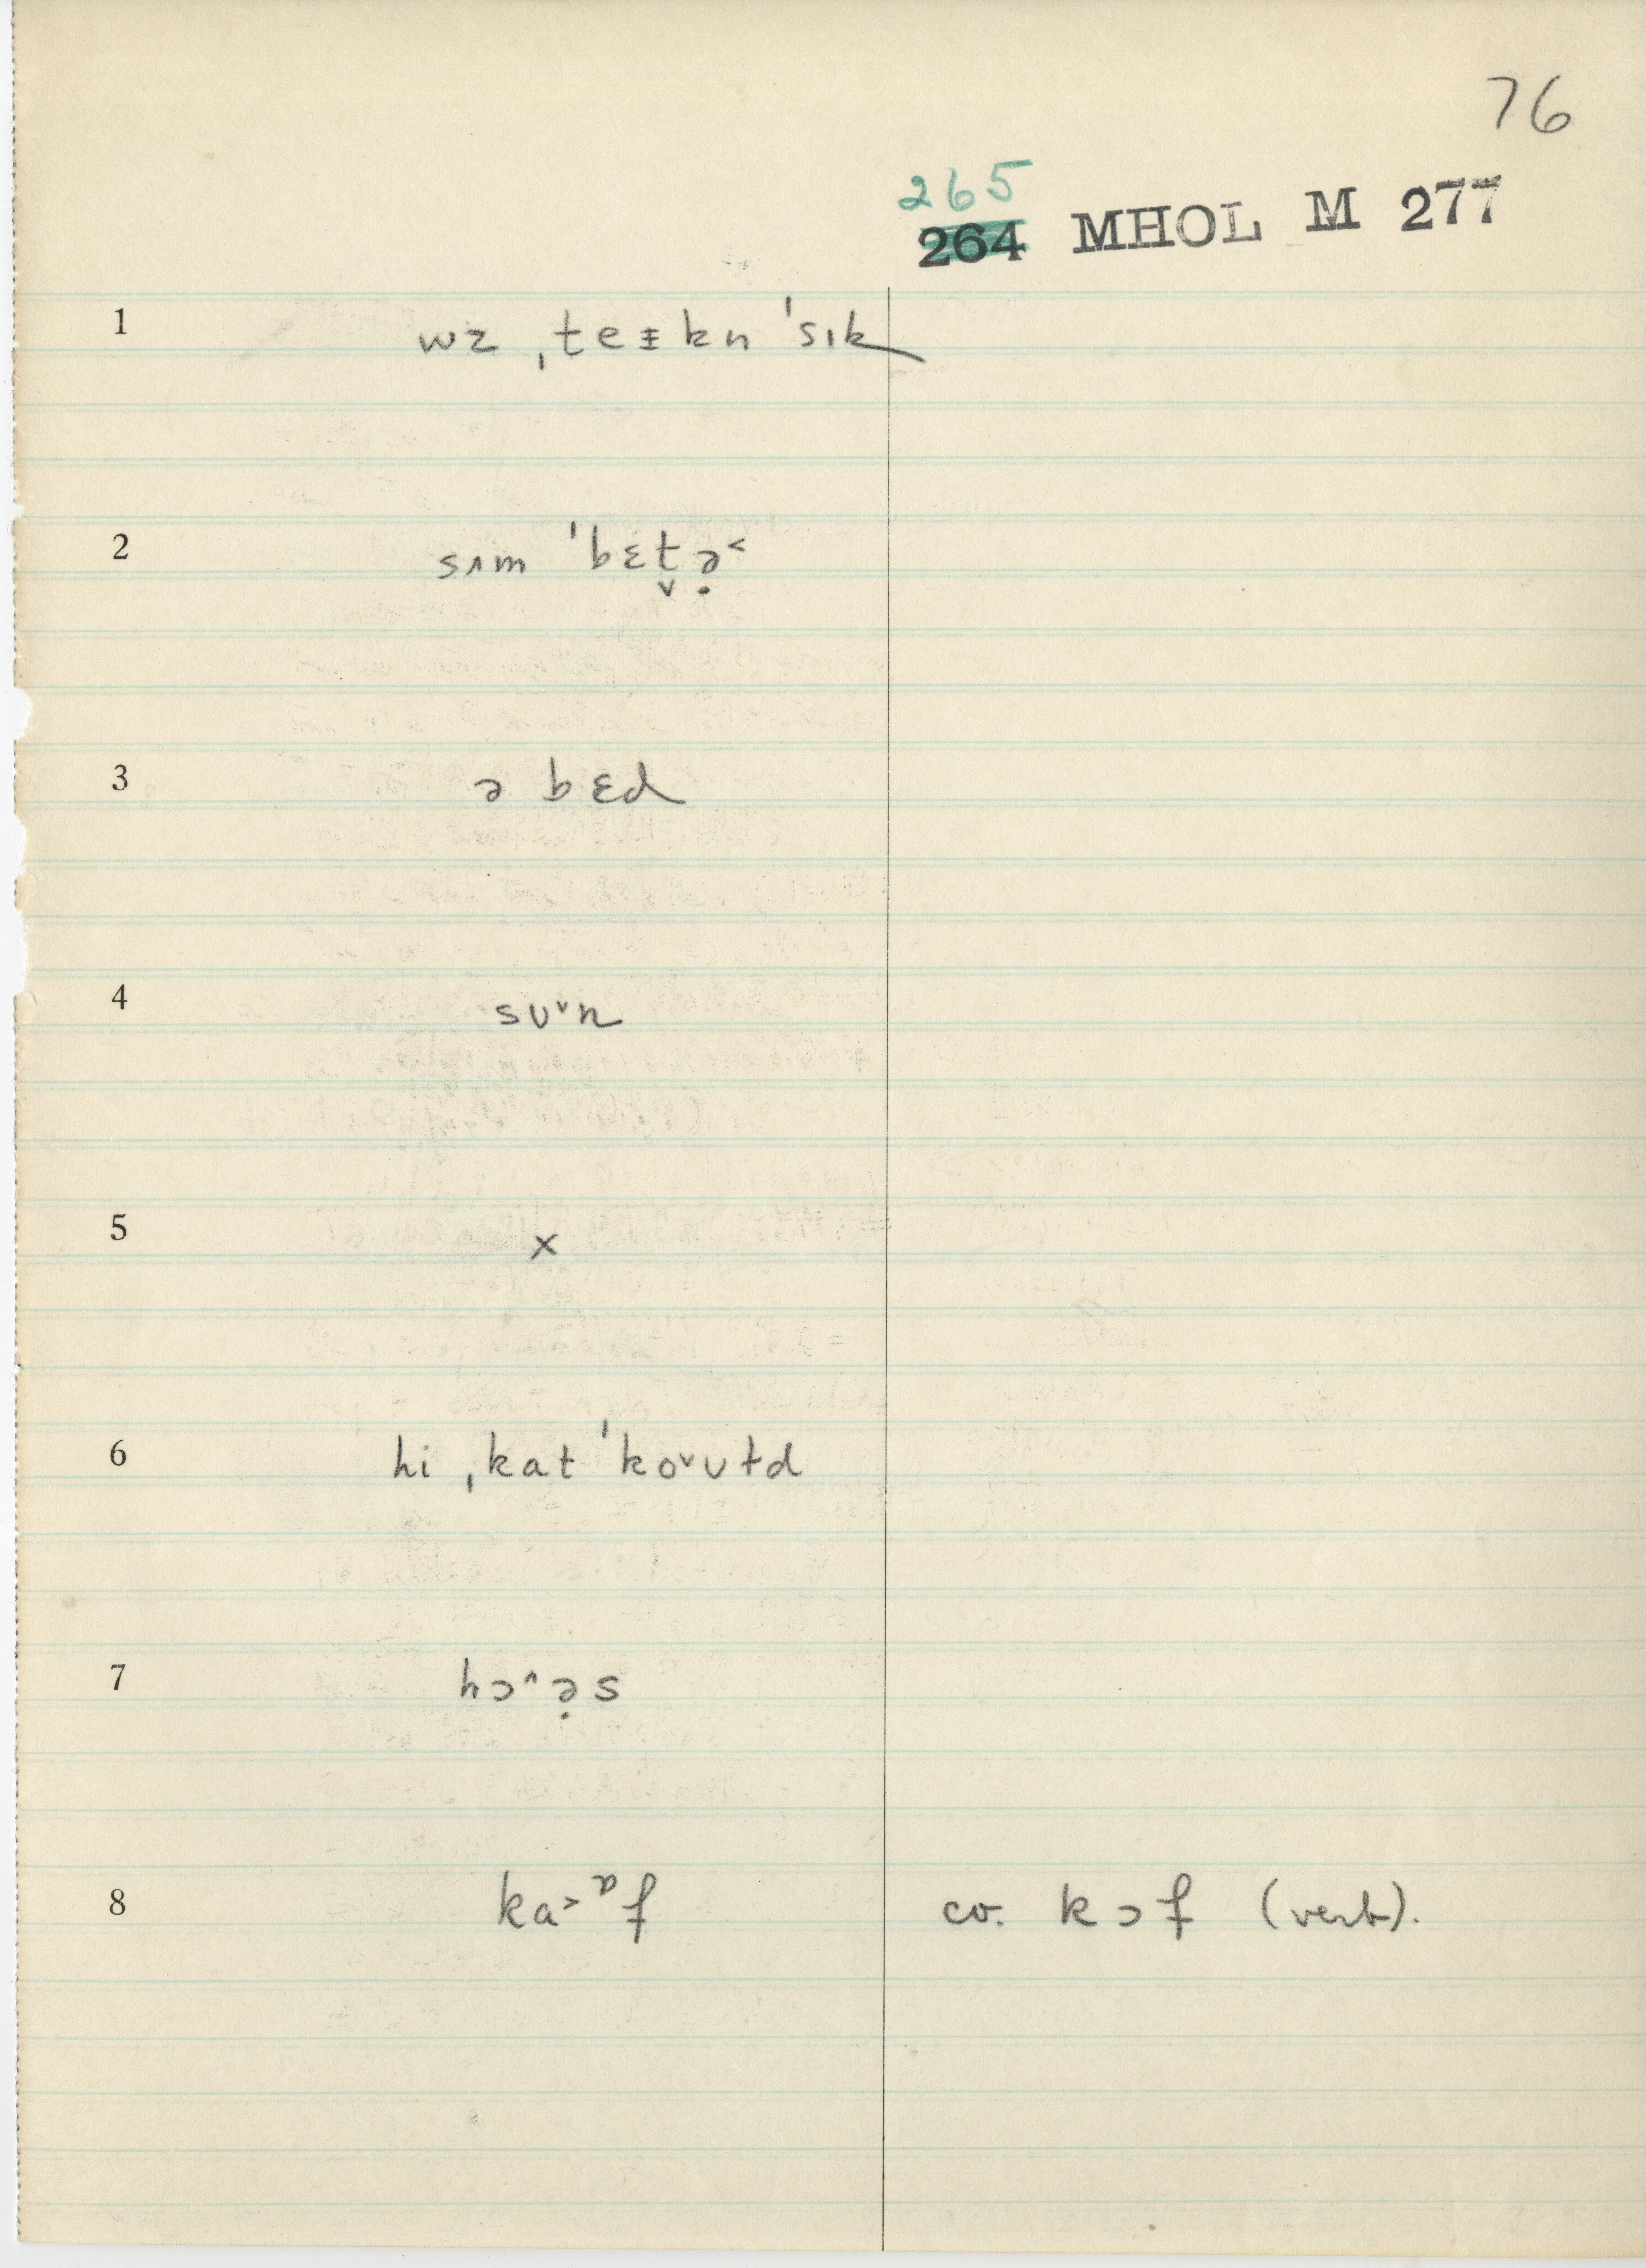 76
265
264 MHOL M 277
1 wz ˌteɪkn ˈsɪk
2 sʌm ˈbɛt̬ə̣˂
3 ə bɛd
4 sʊ˅n
5 x
6 hi ˌkat ˈko˅ʊɫd
7 hɔ˄ə̣s
8 ka˃ɒf co. kɔf (verb).